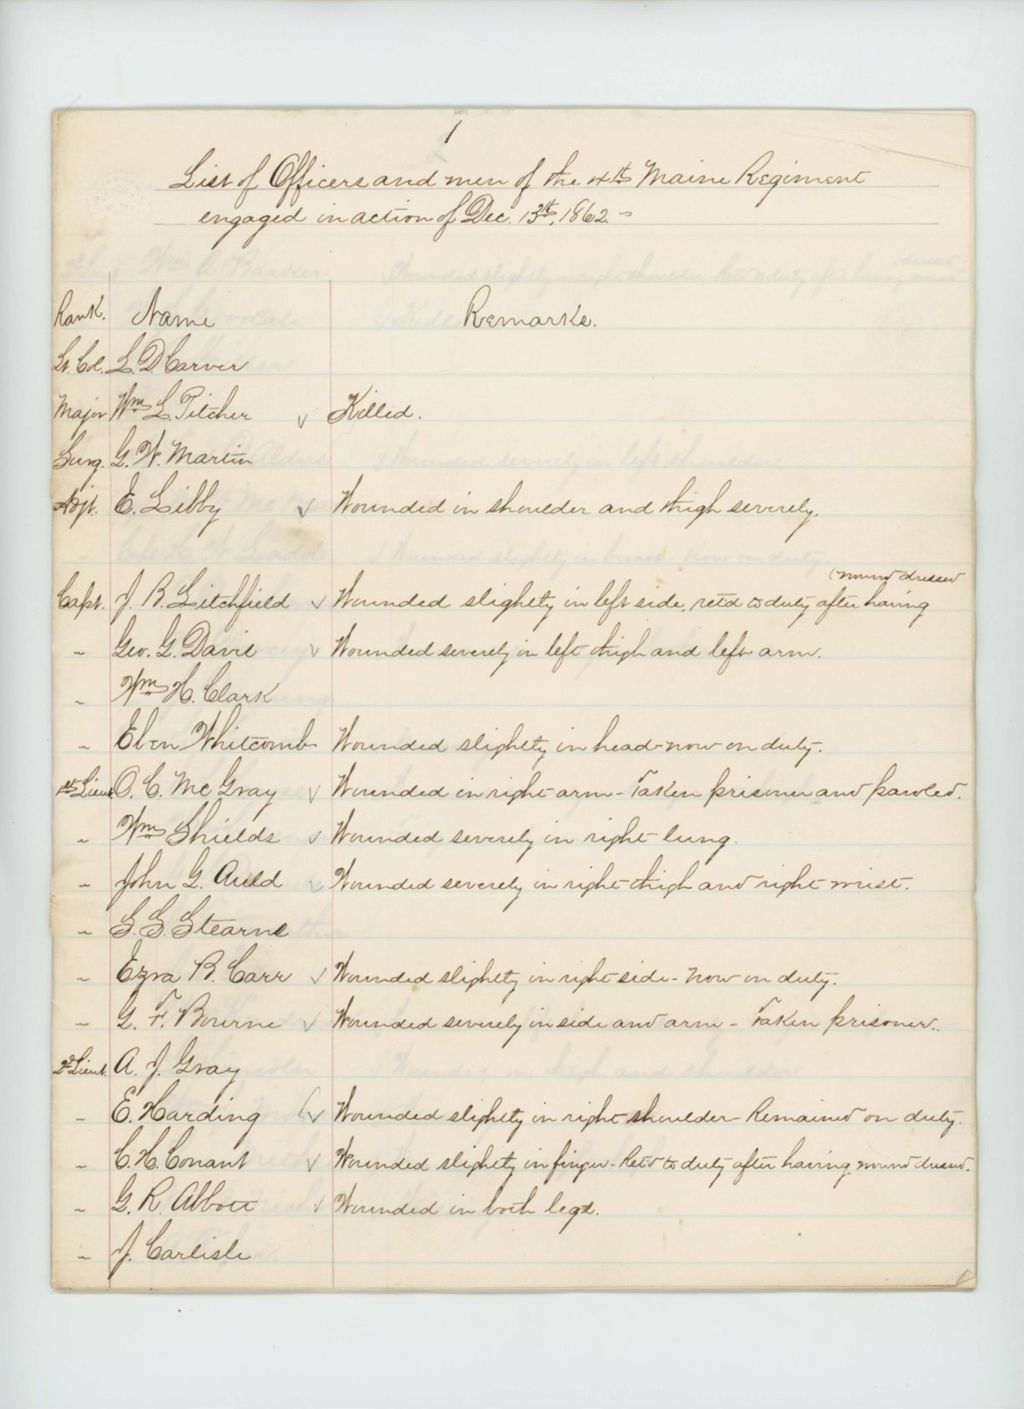 1
List of Officers and men of the 4th Maine Regiment
engaged in action of Dec. 13th, 1862. -
Rank. Name Remarks.
Lt. Col. L. D. Carver
Major Wm L. Pitcher v Killed.
Surg. G. W. Martin
Adjt. E. Libby v Wounded in shoulder and thigh severely.
(wound dressed
Capt. J. B. Litchfield v Wounded slightly in left side, retd to duty after having
" Geo. G. Davis v Wounded severely in left thigh and left arm.
" Wm H. Clark
" Eben Whitcomb Wounded slightly in head - now on duty.
1st Lieut O. C. McGray v Wounded in right arm - Taken prisoner and paroled.
" Wm Shields v Wounded severely in right lung.
" John G. Auld v Wounded severely in right thigh and right wrist.
" G. G. Stearns
" Ezra B. Carr v Wounded slightly in right side - now on duty.
" G. F. Bourne v Wounded severely in side and arm - Taken prisoner.
2d Lieut. A. J. Gray
" E. Harding v Wounded slightly in right shoulder - Remained on duty.
" C. H. Conant v Wounded slightly in finger - Retd to duty after having wound dressed.
" G. R. Abbott v Wounded in both legs.
" J. Carlisle